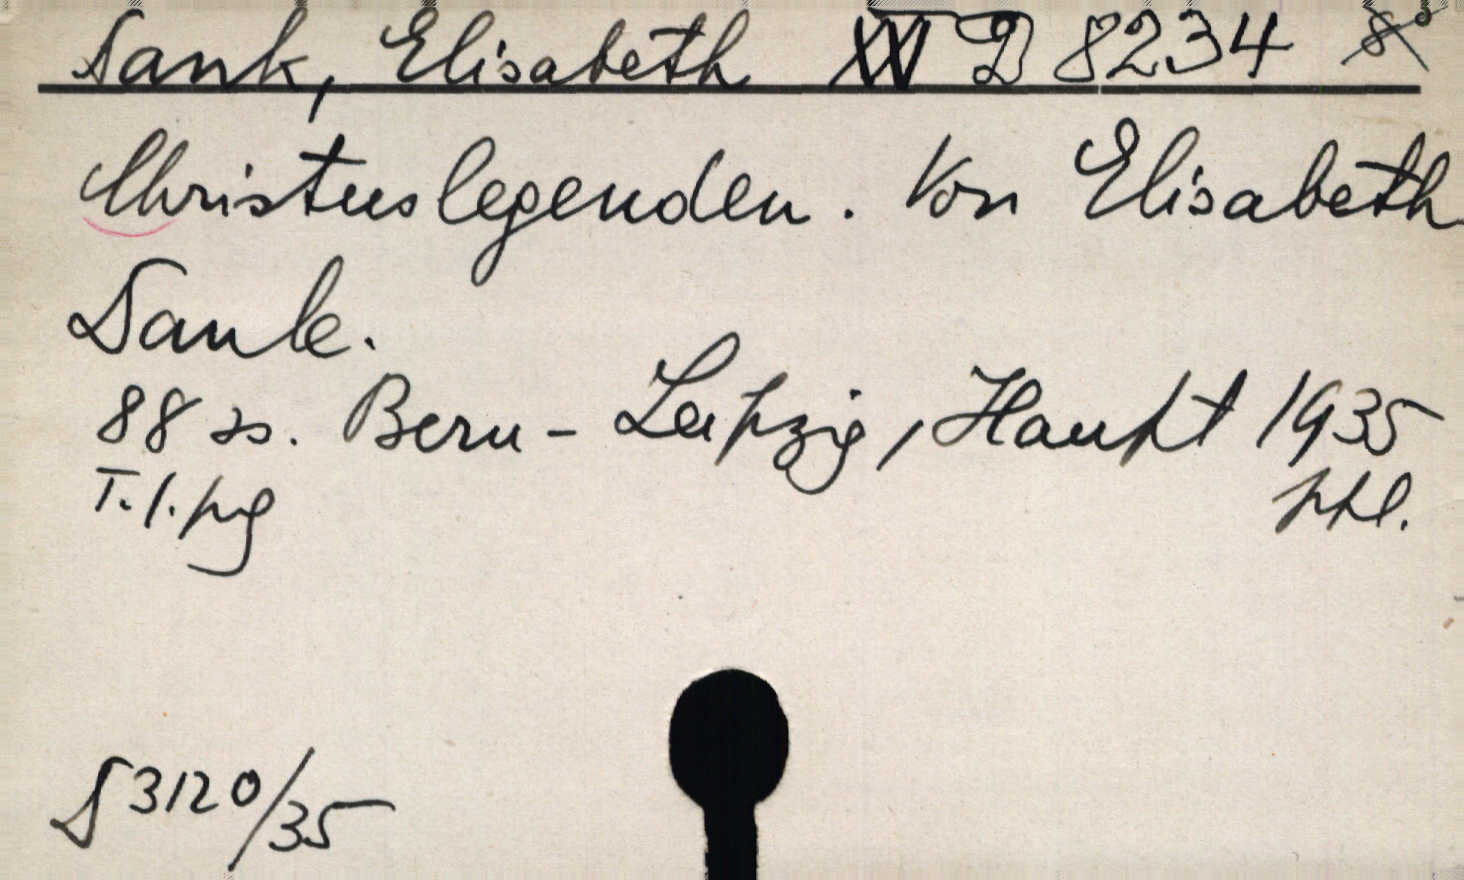 Sank, Elisabeth XVI D 8234 8°
Christuslegenden. Von Elisabeth
Sank.
88 ss. Bern - Leipzig, Haupt 1935
T. 1. pg ppl.
S 3120/35